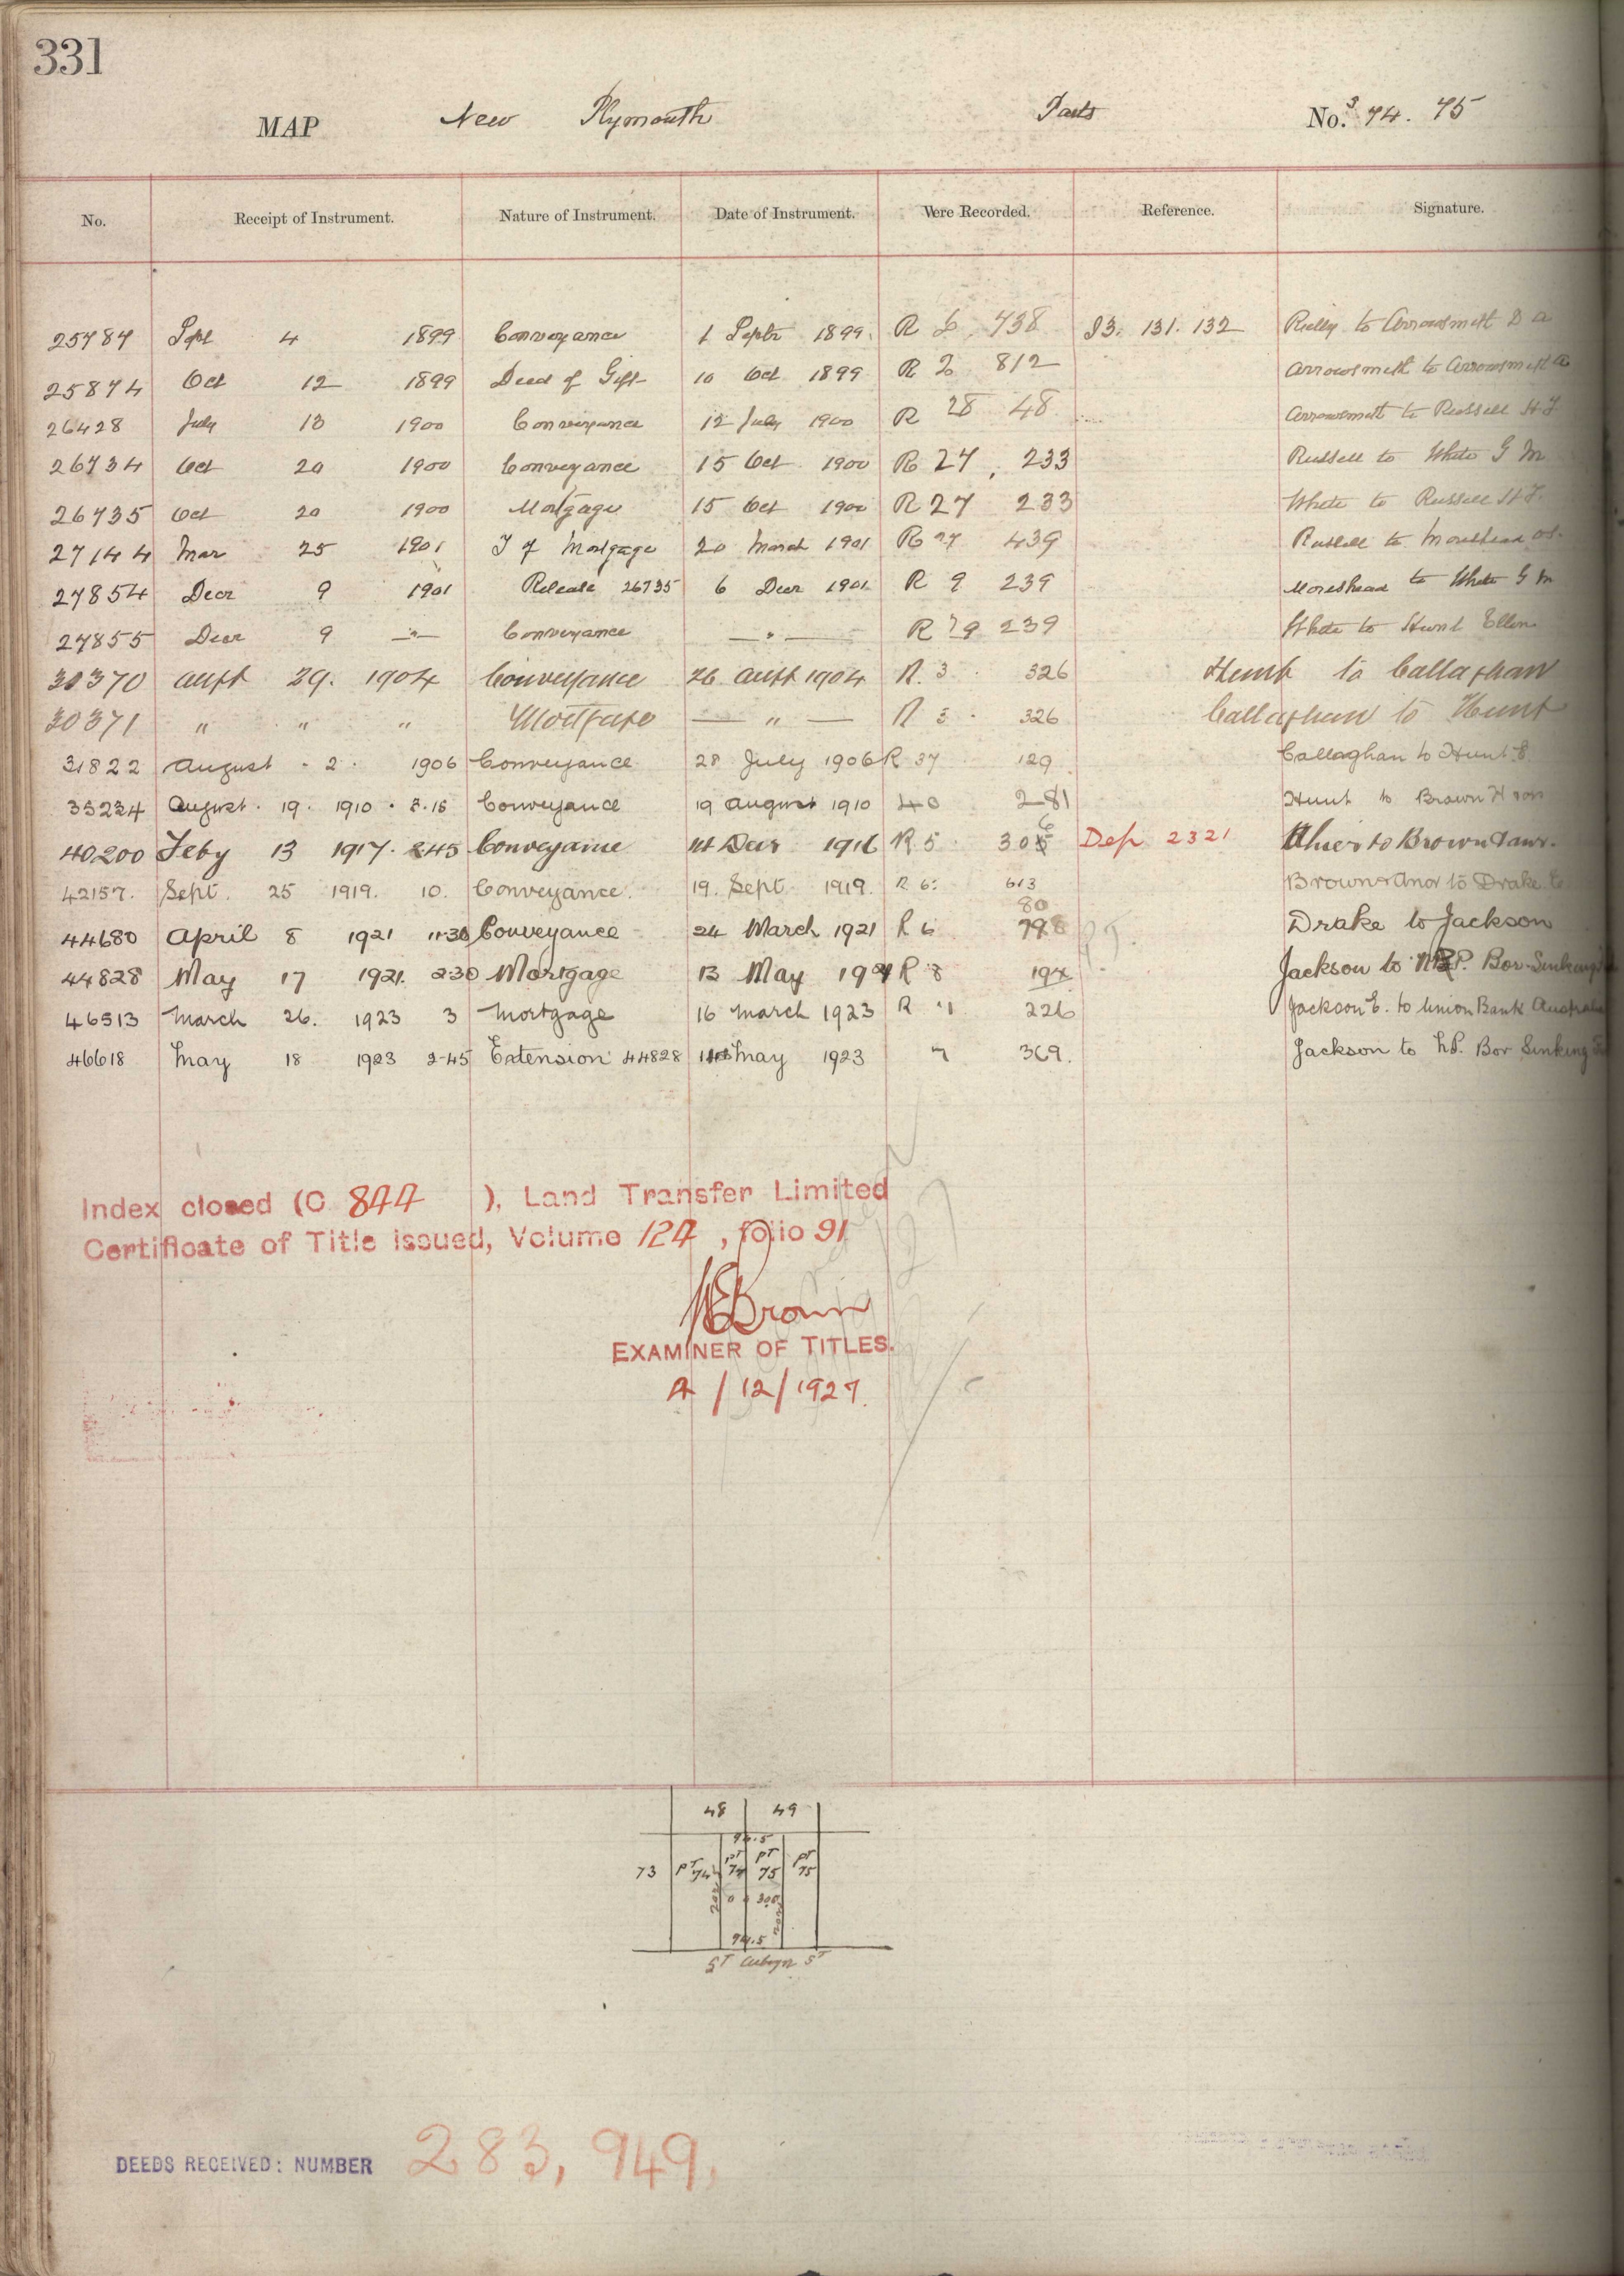 331
MAP New Plymouth Parts No.s 74. 75
No. Receipt of Instrument. Nature of Instrument. Date of Instrument. Were Recorded. Reference. Signature.
25787 Sept 4 1899 Conveyance 1 Septr 1899. R 738 I3. 131. 132 Reilly to Arrowsmith
25874 Oct 12 1899 Deed of Gift 10 Oct 1899 R 812 Arrowsmith to Arrowsmith
26428 July 13 1900 Conveyance 12 July 1900 R 28 48 Arrowsmith to Russell H.J.
26734 Oct 20 1900 Conveyance 15 Oct 1900 R 27, 233 Russell to White G M
26735 Oct 20 1900 Mortgage 15 Oct 1900 R 27 233 White to Russell H.J.
27144 Mar 25 1901 T of Mortgage 20 March 1901 R 27 439 Russell to Moreshead
27854 Decr 9 1901 Release 26735 6 Decr 1901 R 9 239 Moreshead to White G M
27855 Decr 9 —"— Conveyance —"— R 29 239 White to Hunt Ellen
30370 Augt 29. 1904 Conveyance 26 Augt 1904 R. 3 326 Hunt to Callaghan
30371 " " " Mortgage — " — R 3 326 Callaghan to Hunt
31822 August 2 1906 Conveyance 28 July 1906 R 37 129 Callaghan to Hunt E
35234 August 19 1910 3.15 Conveyance 19 August 1910 40 281 Hunt to Brown H
40200 Feby 13 1917. 2.45 Conveyance Decr 1916 R 5 306 Dep 2321 to Brown
42157. Sept. 25 1919. 10. Conveyance. 19. Sept 1919. R 6: 613 Brown & Anor to Drake
44680 April 8 1921 11.30 Conveyance 24 March 1921 R 6 80 798 Drake to Jackson
44828 May 17 1921. 2.30 Mortgage 13 May 1921 R 8 194 Jackson to N.P. Bor. Sinking
46513 March 26. 1923 3 Mortgage 16 March 1923 R 226 Jackson E. to Union Bank Australia
46618 May 18 1923 2-45 Extension 44828 May 1923 7 369. Jackson to N.P. Bor Sinking
Index closed (C 844 ), Land Transfer Limited
Certificate of Title issued, Volume 124, folio 91
Brown
EXAMINER OF TITLES.
4/12/1927.
48 49
94.5
73 PT 74 PT 74 PT 75 PT 75
94.5
ST Aubyn ST
DEEDS RECEIVED: NUMBER 283,949.